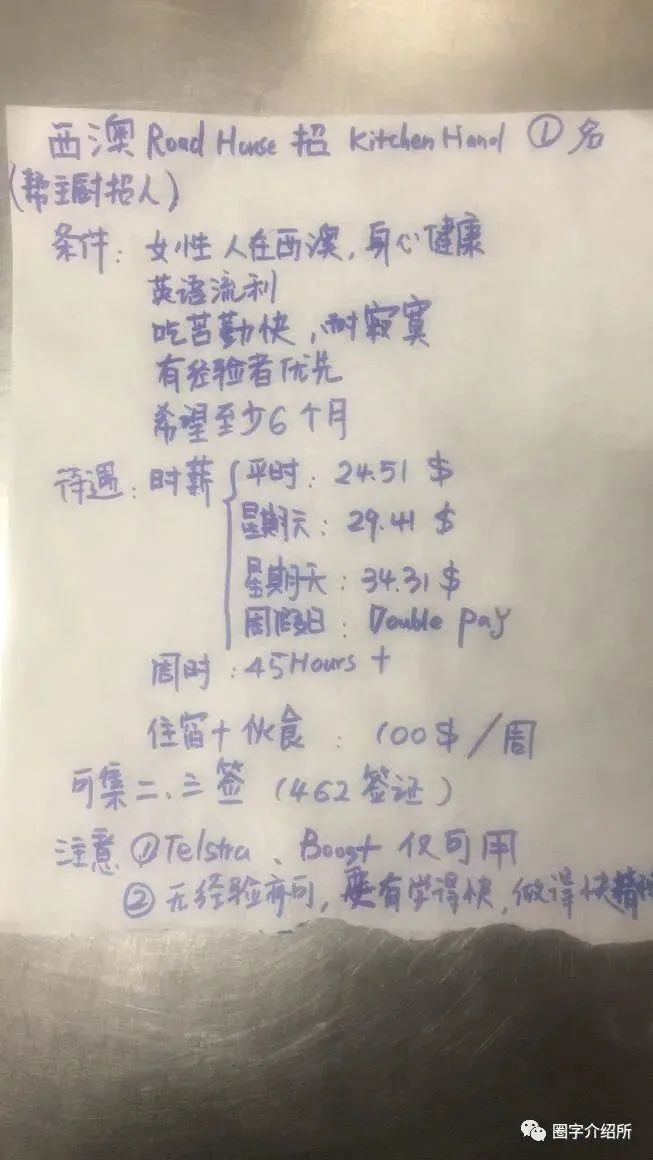 西澳 Road House 招 Kitchen Hand ① 名
(帮主厨招人)
条件: 女性 人在西澳, 身心健康
英语流利
吃苦勤快, 耐寂寞
有经验者优先
希望至少6个月
待遇: 时薪 { 平时: 24.51 $
星期天: 29.41 $
星期天: 34.31 $
周假日: Double pay
周时: 45Hours +
住宿+伙食: 100$/周
可集二、三签 (462签证)
注意 ①Telstra、Boost 仅可用
② 无经验亦可, 要有学得快, 做得快精
圈字介绍所